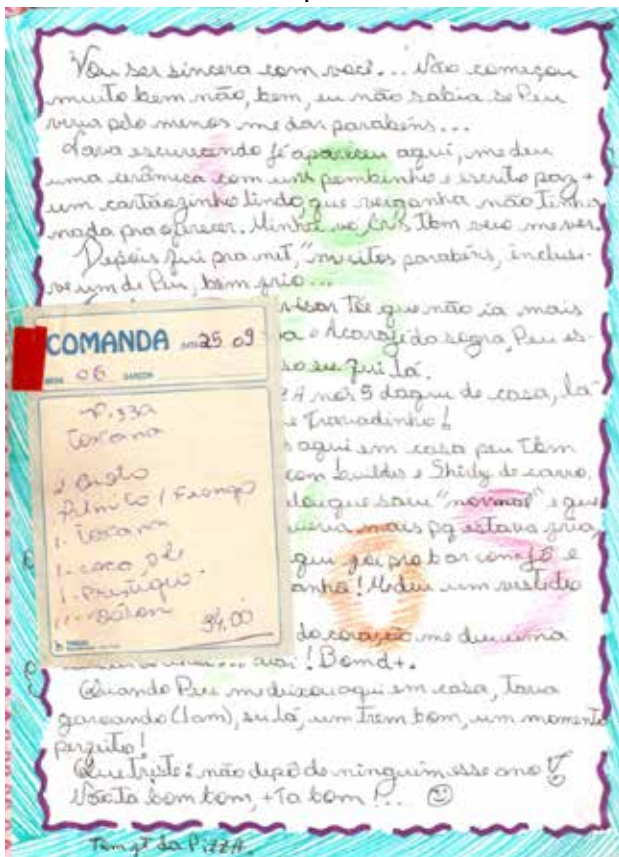 Vou ser sincera com você... Não começou
muito bem não, bem, eu não sabia se Peu
viria pelo menos me dar parabéns...
Tava escurecendo Jé apareceu aqui, me deu
uma cerâmica com uns pombinho e escrito paz +
um cartãozinho lindo, que vergonha não tinha
nada pra oferecer. Minha vó Cris tbm veio me ver.
Depois fui pra net, "muitos parabéns, inclusi-
ve um de Peu, bem frio...
que não ia mais
Acarajé da sogra, Peu es-
eu fui lá.
nós 5 daqui de casa, lá
Travadinho!
aqui em casa peu tbm
com Leuildes e Shirly de carro.
saiu "normal" e que
mais pq estava fria,
foi pro bar com Jô e
! Me deu um vestido
do coração me deu uma
! Bom d+.
Quando Peu me deixou aqui em casa, tava
garoando (1am), sei lá, um trem bom, um momento
perfeito!
Que triste é não depô de ninguém esse ano
Não tá bom bom, + Ta bom!...
COMANDA
25 09
06
Pizza
Toscana
Palmito / Frango
1. Toscana
1. coca 2L
1. Prestígio
34,00
da PiZZA.